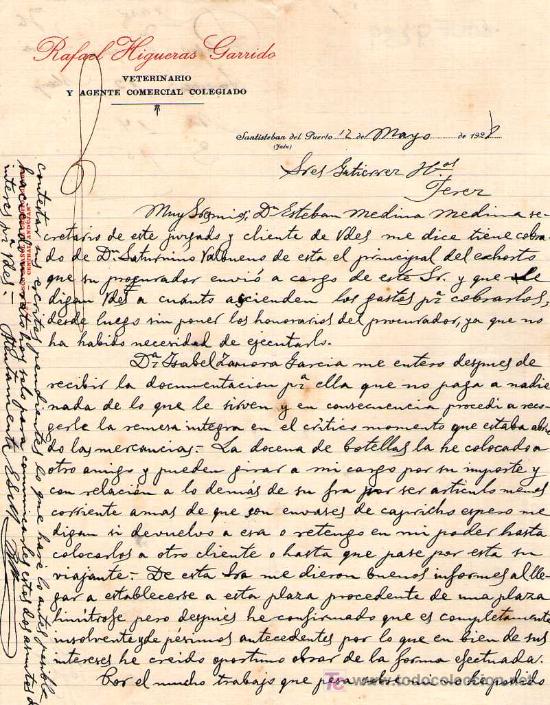 Rafael Higueras Garrido
VETERINARIO
Y AGENTE COMERCIAL COLEGIADO
Santisteban del Puerto 12 de Mayo de 192
(Jaén)
Sres Gutierrez Hos
Jerez
Muy Sres mios; Dn Esteban Medina Medina se-
cretario de este juzgado y cliente de Vdes me dice tiene cobra-
do de Dn Saturnino Valbueno de esta el principal del exhorto
que su procurador envió a cargo de este Sr. y que le
digan Vdes a cuánto ascienden los gastos pa cobrarlos,
desde luego sin poner los honorarios del procurador, ya que no
ha habido necesidad de ejecutarlo.
Da Isabel Zamora Garcia me entero despues de
recibir la documentacion pa ella que no paga a nadie
nada de lo que le sirven y en consecuencia procedi a reco-
gerle la remesa integra en el critico momento que estaba abrien
do las mercancias.- La docena de botellas la he colocado a
otro amigo y pueden girar a mi cargo por su importe y
con relación a lo demás de su fra por ser articulo menos
corriente amas de que son envases de capricho espero me
digan si devuelvo a esa o retengo en mi poder hasta
colocarlos a otro cliente o hasta que pase por esta su
viajante.- De esta Sra me dieron buenos informes al lle-
gar a establecerse a esta plaza procedente de una plaza
limitrofe pero despues he confirmado que es completamente
insolvente y de pésimos antecedentes por lo que en bien de sus
intereses he creido oportuno obrar de la forma efectuada.
Por el mucho trabajo que pesa sobre mi no he podido
contestar escritos pendientes lo que haré lo antes posible
haciendo un rato hoy solo para comunicarles estos dos asuntos de
interes pa Vdes =
Atentamente
todocoleccion.net